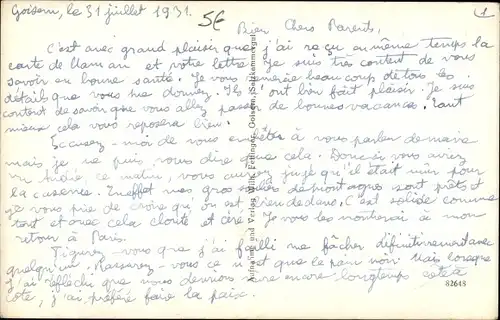 Goisern, le 31 juillet 1931.
5€
1
Bien Chers Parents,
C'est avec grand plaisir que j'ai reçu en même temps la
carte de Maman et votre lettre. Je suis très content de vous
savoir en bonne santé. Je vous remercie beaucoup de tous les
détails que vous me donnez. Ils m'ont bien fait plaisir. Je suis
content de savoir que vous allez passer de bonnes vacances. Tant
mieux cela vous reposera bien.
Excusez-moi de vous en à vous parler de
mais je ne puis vous dire que cela. Donc si vous aviez
vu André ce matin, vous auriez jugé qu'il était mûr pour
la caserne. En effet mes gros souliers de montagnes sont prêts et
je vous prie de croire qu'on est bien dedans. C'est solide comme
tout et avec cela clouté et ciré. Je vous les montrerai à mon
retour à Paris.
Figurez-vous que j'ai failli me fâcher définitivement avec
quelqu'un. Rassurez-vous ce n'est que le pain noir. Mais lorsque
j'ai réfléchi que nous devrions vivre encore longtemps côte à
côte, j'ai préféré faire la paix.
Aufnahme und Verlag Wilh. Fettinger, Goisern, Salzkammergut
82648